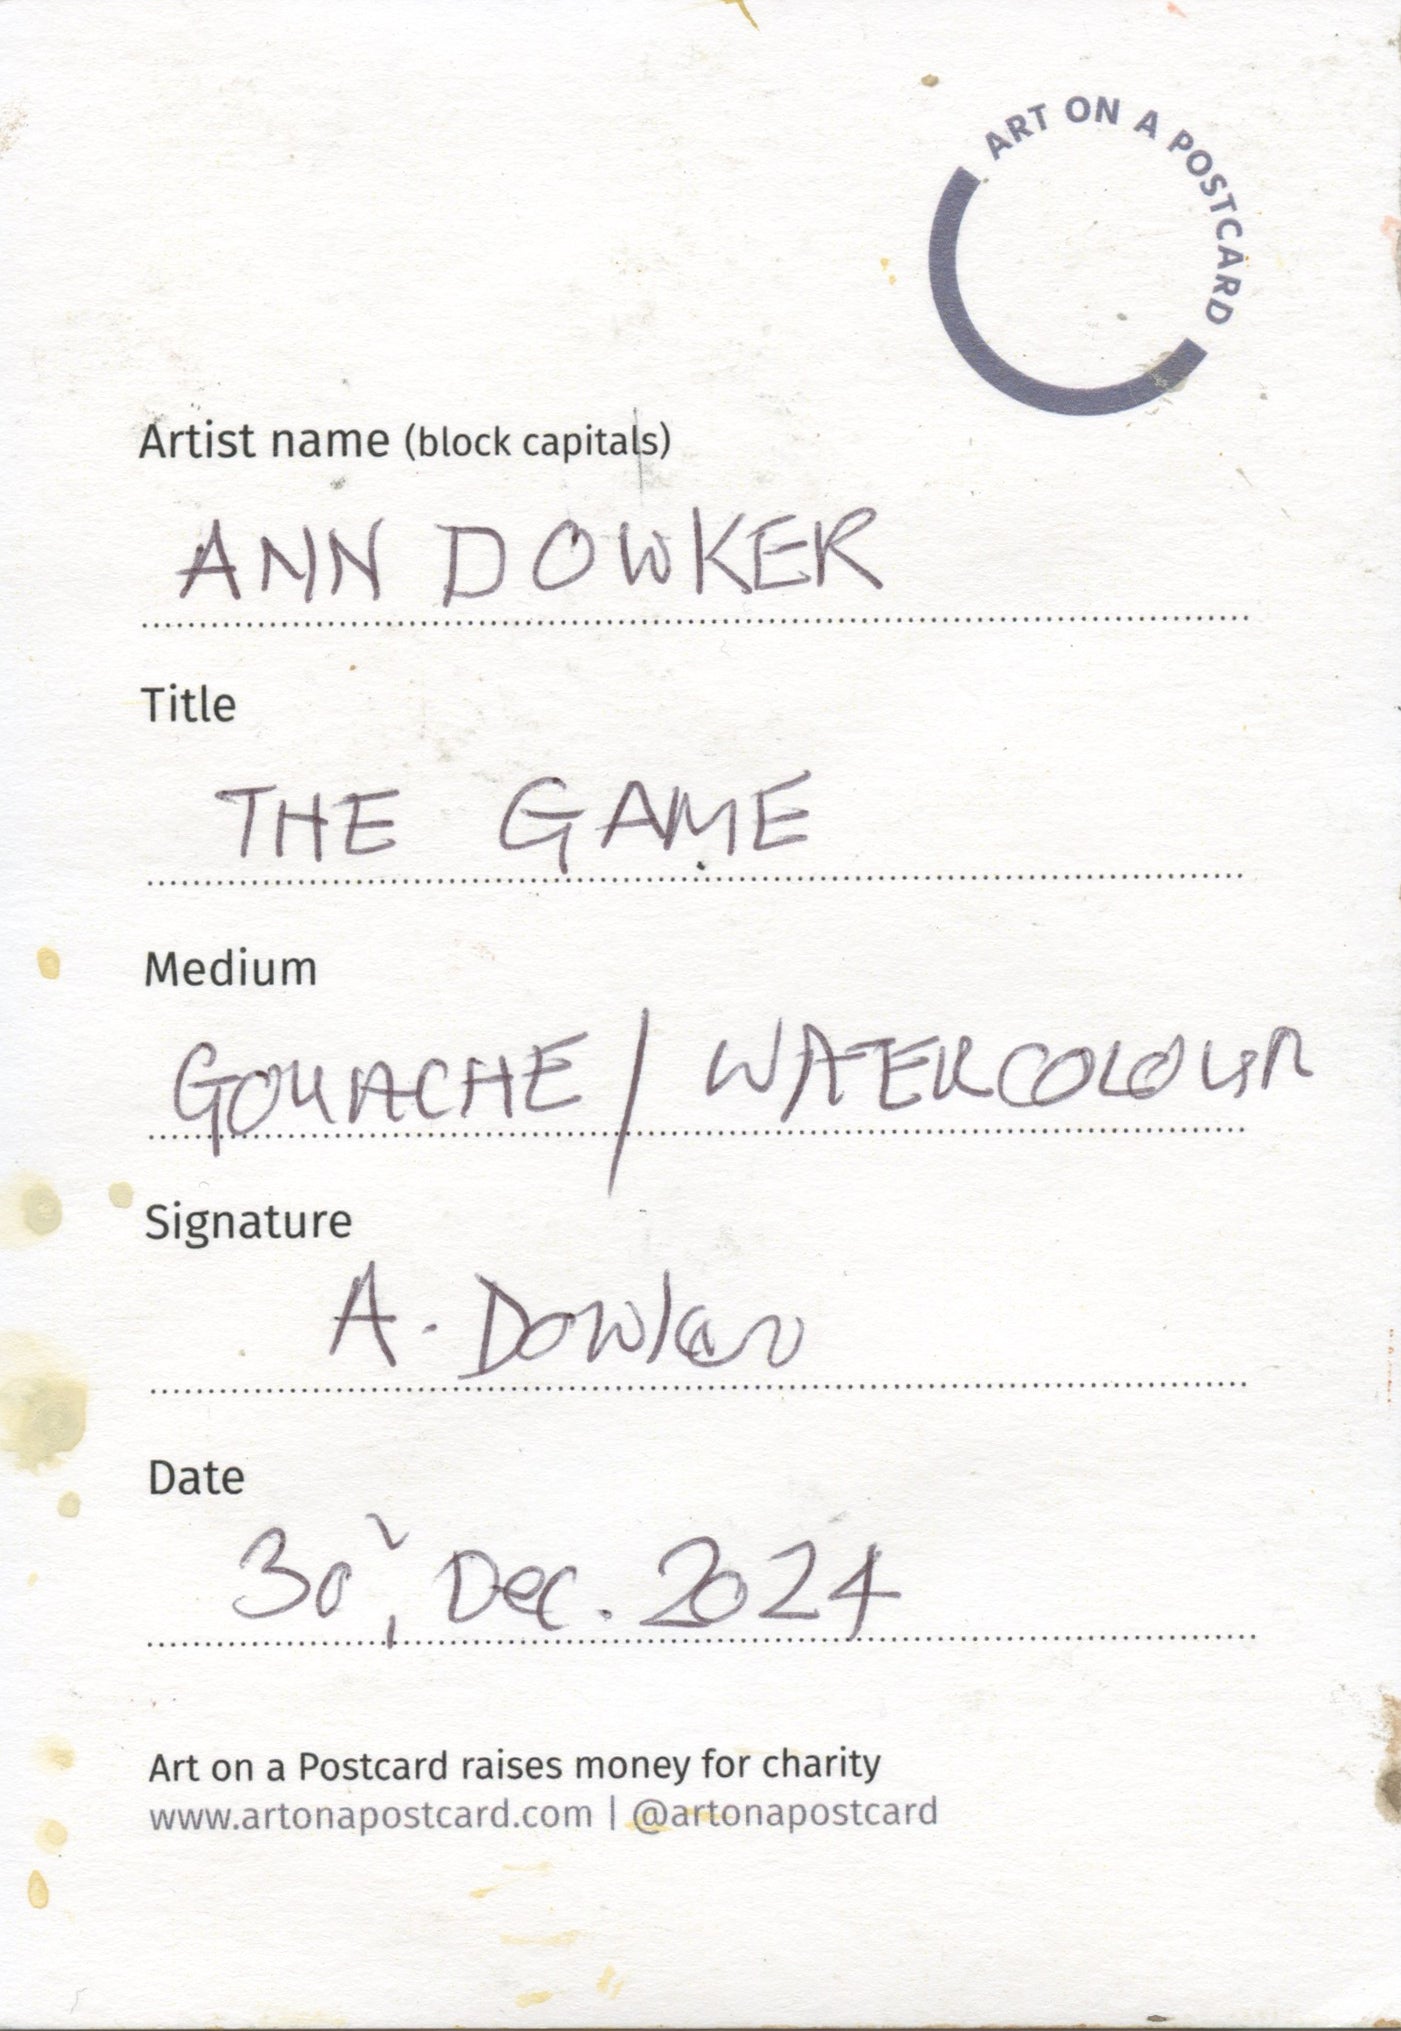 ART ON A POSTCARD
Artist name (block capitals)
ANN DOWKER
Title
THE GAME
Medium
GOUACHE / WATERCOLOUR
Signature
A. Dowker
Date
30, Dec. 2024
Art on a Postcard raises money for charity
www.artonapostcard.com | @artonapostcard